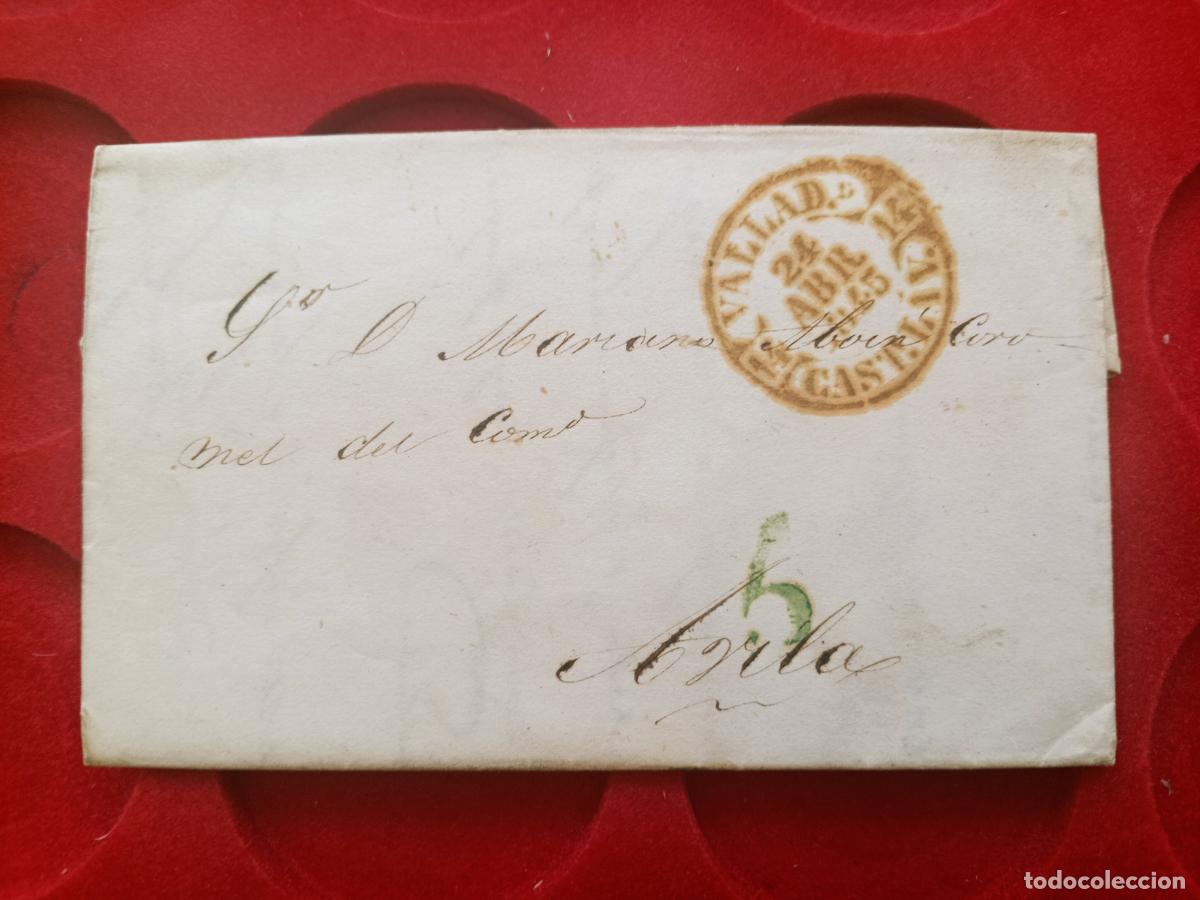 VALLAD.D
24
ABR
1845
CAST. LA V.
Sor D Mariano Aboin Coro
nel del Comd
5
Avila
todocoleccion